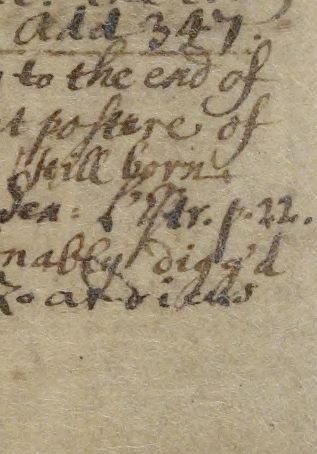 add 347.
to the end of
posture of
still born
p. 22.
nably digg'd